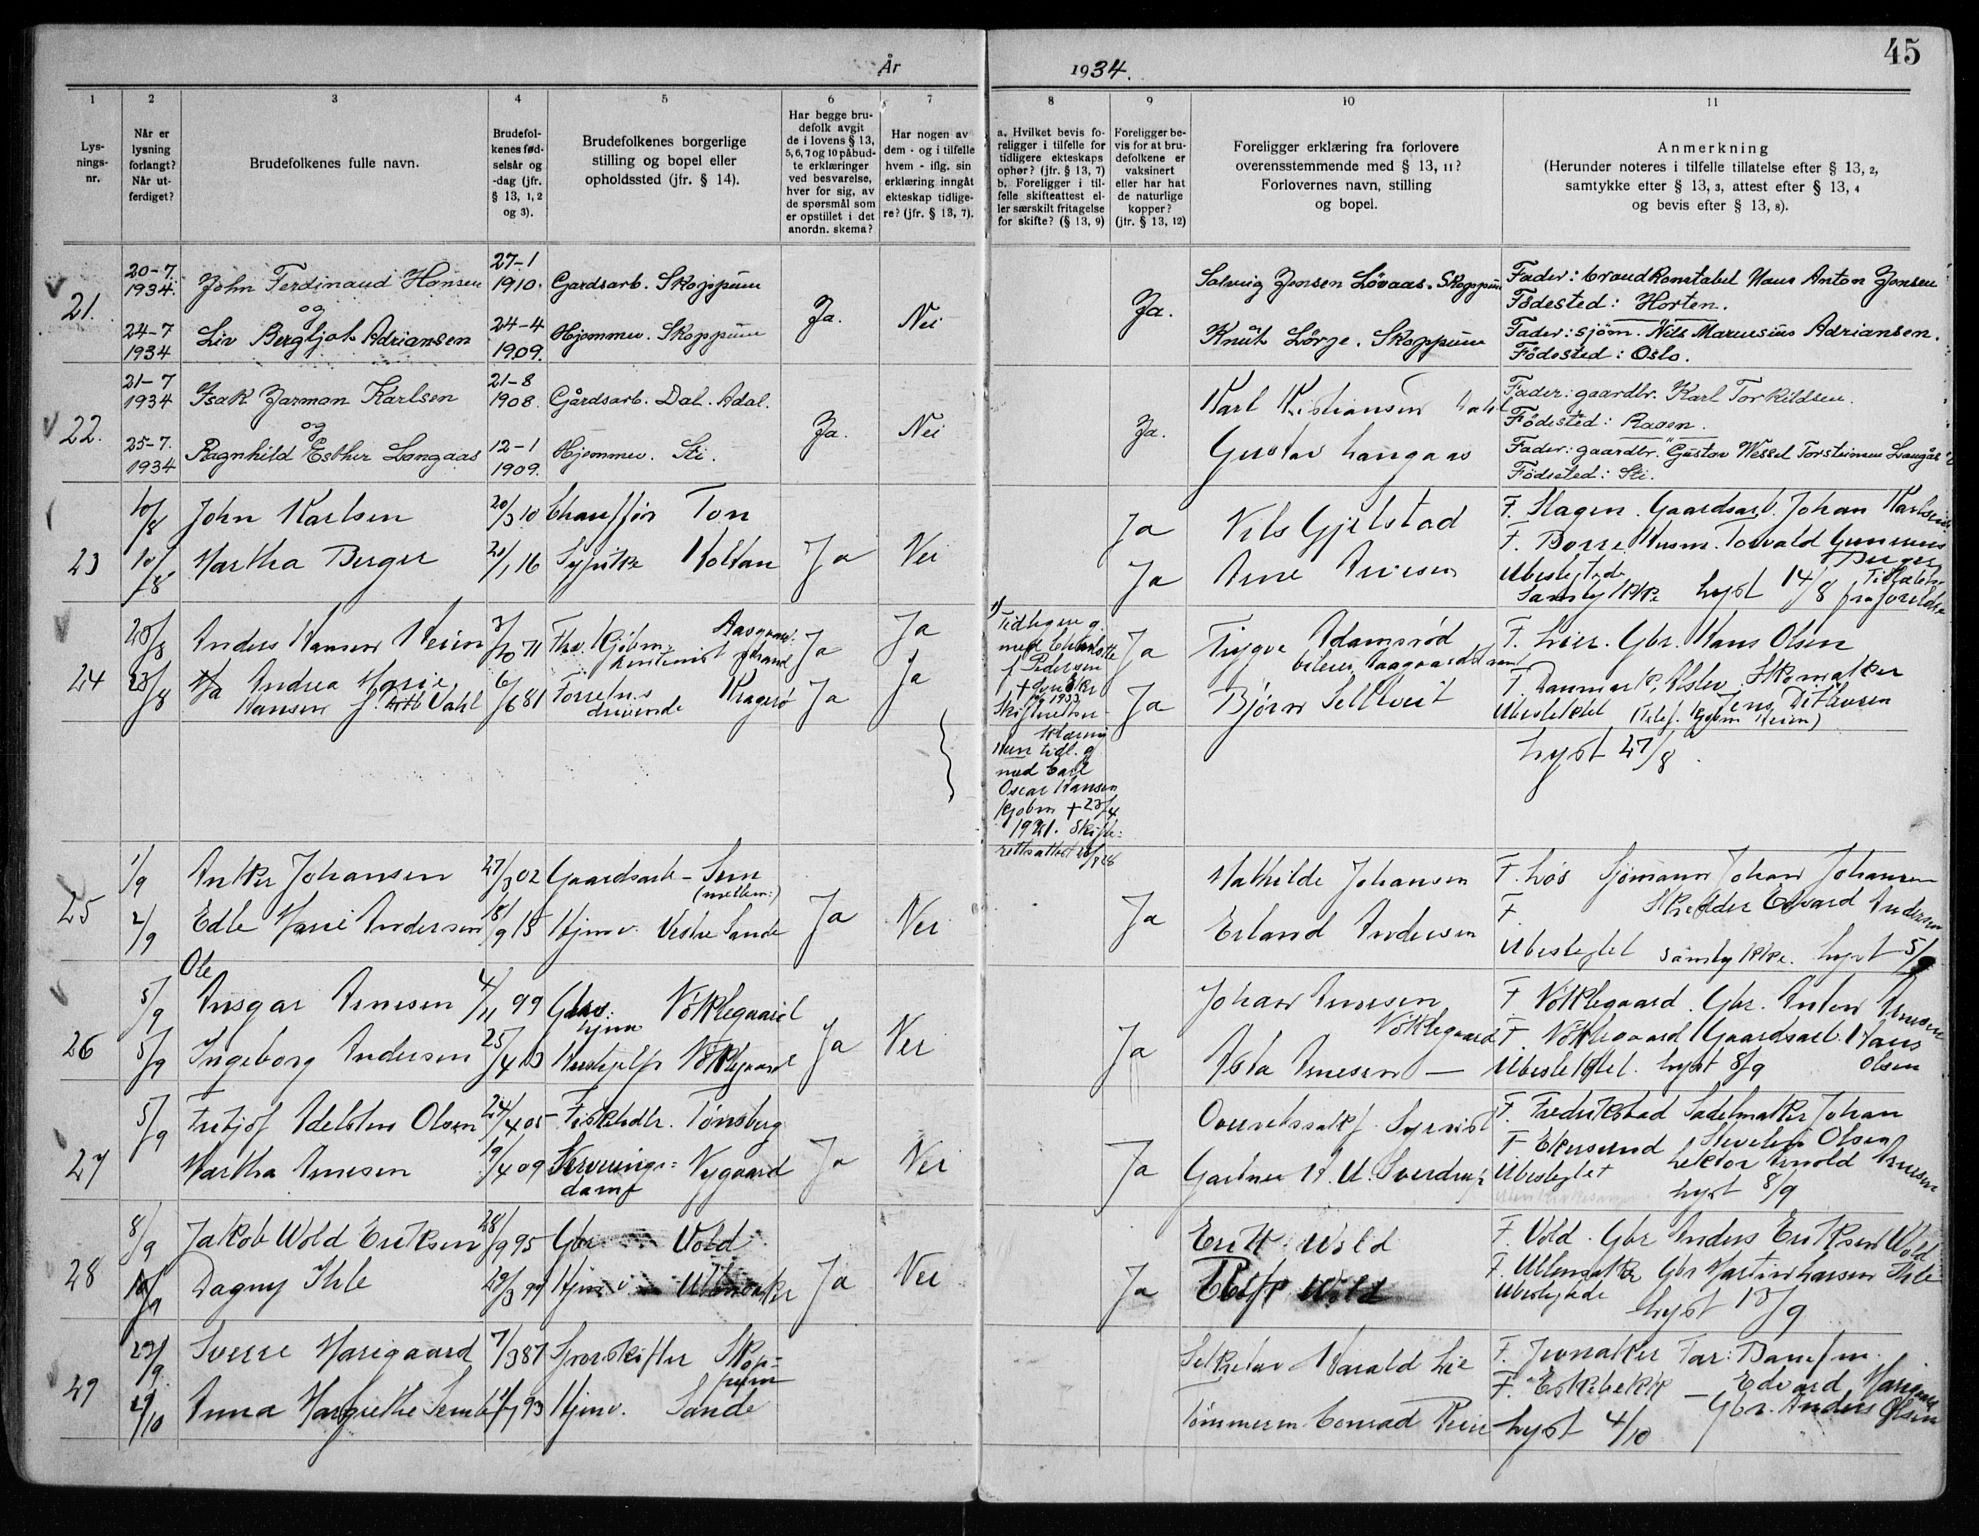 45
År 1934.
1
2
3
4
5
6
7
8
9
10
11
Lys-
nings-
nr.
Når er
lysning
forlangt?
Når ut-
ferdiget?
Brudefolkenes fulle navn.
Brudefol-
kenes fød-
selsår og
-dag (jfr.
§ 13, 1, 2
og 3).
Brudefolkenes borgerlige
stilling og bopel eller
opholdssted (jfr. § 14).
Har begge bru-
defolk avgit
de i lovens § 13,
5, 6, 7 og 10 påbud-
te erklæringer
ved besvarelse,
hver for sig, av
de spørsmål som
er opstillet i det
anordn. skema?
Har nogen av
dem - og i tilfelle
hvem - iflg. sin
erklæring inngåt
ekteskap tidlige-
re? (jfr. § 13, 7).
a. Hvilket bevis fo-
religger i tilfelle for
tidligere ekteskaps
ophør? (jfr. § 13, 7)
b. Foreligger i til-
felle skifteattest el-
ler særskilt fritagelse
for skifte? (§ 13, 9)
Foreligger be-
vis for at bru-
defolkene er
vaksinert
eller har hat
de naturlige
kopper?
(jfr. § 13, 12)
Foreligger erklæring fra forlovere
overensstemmende med § 13, 11?
Forlovernes navn, stilling
og bopel.
Anmerkning
(Herunder noteres i tilfelle tillatelse efter § 13, 2,
samtykke efter § 13, 3, attest efter § 13, 4
og bevis efter § 13, 8).
21.
20-7.
1934.
John Ferdinand Hansen
og
27-1
1910.
Gardsarb. Skoppum
24-7
1934
Liv Bergljot Adriansen
24-4
1909.
Hjemmev. Skoppum
Ja.
Nei
Ja.
Solveig Jensen Løvaas. Skoppum
Knut Lörge. Skoppum
Fader: brandkonstabel Hans Anton Jensen
Födested: Horten.
Fader: sjöm. Nils Marensius Adriansen.
Födested: Oslo.
22.
21-7
1934
Isak Jarman Karlsen
og
21-8
1908.
Gårdsarb. Dal. Adal.
25-7.
1934
Ragnhild Esther Langaas
12-1
1909.
Hjemmev. Sti.
Ja.
Nei
Ja.
Karl Kristiansen Dahl
Gustav Langaas
Fader: gaardbr. Karl Torkildsen.
Födested: Raaen.
Fader: gaardbr. Gustav Wessel Torsteinsen Langås
Födested: Sti.
23
10/8
John Karlsen
20/3 10
Chauffør Ton
10/8
Martha Berger
21/1 16
Sypike Holtan
Ja
Nei
Ja
Ja
Nils Gjelstad
Arne Arnesen
F. Slagen. Gaardsarb. Johan Karlsen
F. Borre Husm. Torvald Gunerius
Berger
Ubeslegtede
Samtykke lyst 14/8 fra foreldre
24
20/8
Anders Hansen Heien
3/10 71
Fhv. Kjøbm. Aasgaard-
strand
23/8
Andrea Marie
Hansen f. Dahl
6/6 81
Forretn.s
drivende Kragerø
Ja
Ja
Ja
Ja
1)
Tidligere g.
med Charlotte
f Pedersen
1933
Hun tidl. g
med Carl
Oscar Hansen
Kjøbm + 23/4
1921. Skifte-
rettsattest
Ja
Ja
Trygve Adamsrød
Aasgaardstrand
Bjørn Selltveit
F. Lier. Gbr. Hans Olsen
F. Danmark, Skomaker
Jens Ditlevsen
Ubeslektet
Lyst 27/8.
25
1/9
Anker Johansen
27/3 02
Gaardsarb - Sem
(mellem:)
2/9
Edle Marie Andersen
18/9 15
Hjemv. Vestre Sande
Ja
Nei
Ja
Mathilde Johansen
Erland Andersen
F. Løs Sjømann Johan Johansen
F. Skredder Edvard Andersen
Ubeslegtet samtykke. Lyst 5/9
26
5/9
Ole
Ansgar Arnesen
4/11 99
Gbr. Nøklegaard
5/9
Ingeborg Andersen
25/4 13
hjem
Hushjelp Nøklegaard
Ja
Nei
Ja
Johan Arnesen
Nøklegaard
Asta Arnesen —
F Nøklegaard. Gbr. Anton Arnesen
F. Nøklegaard Gaardsarb. Hans
Olsen
Ubeslektet. Lyst 8/9
27
5/9
Fritjof Adelsten Olsen
24/4 05
Fiskehdlr. Tønsberg
Martha Arnesen
19/4 09
Serverings- Nygaard
dame
Ja
Nei
Ja
Overrettssakf. Syrrist
Gartner H. U. Sverdrup
F. Fredrikstad Sadelmaker Johan
Olsen
F Ekersund Lektor Arnold Arnesen
Ubeslegtet
Lyst 8/9
28
8/9
Jakob Wold Eriksen
28/9 95
Gbr Vold
10/9
Dagny Ihle
29/3 99
Hjemv Ullensaker
Ja
Nei
Ja
Erik Wold
Wold
F. Vold. Gbr Anders Eriksen Wold
F. Ullensaker Gbr Martin Larsen Ihle
Ubeslegtede
Lyst 13/9
29
29/9
Sverre Harigaard
7/3 87
Sporskifter Skop-
pum
29/10
Anna Margrethe Semb
93
Hjemv. Sande
Sekretær Harald Lie
Tømmerm Conrad Reier
F. Jevnaker Far: Banefm.
Edvard Harigaard
F. Eskebekk — Gbr. Anders Olsen
Lyst 4/10